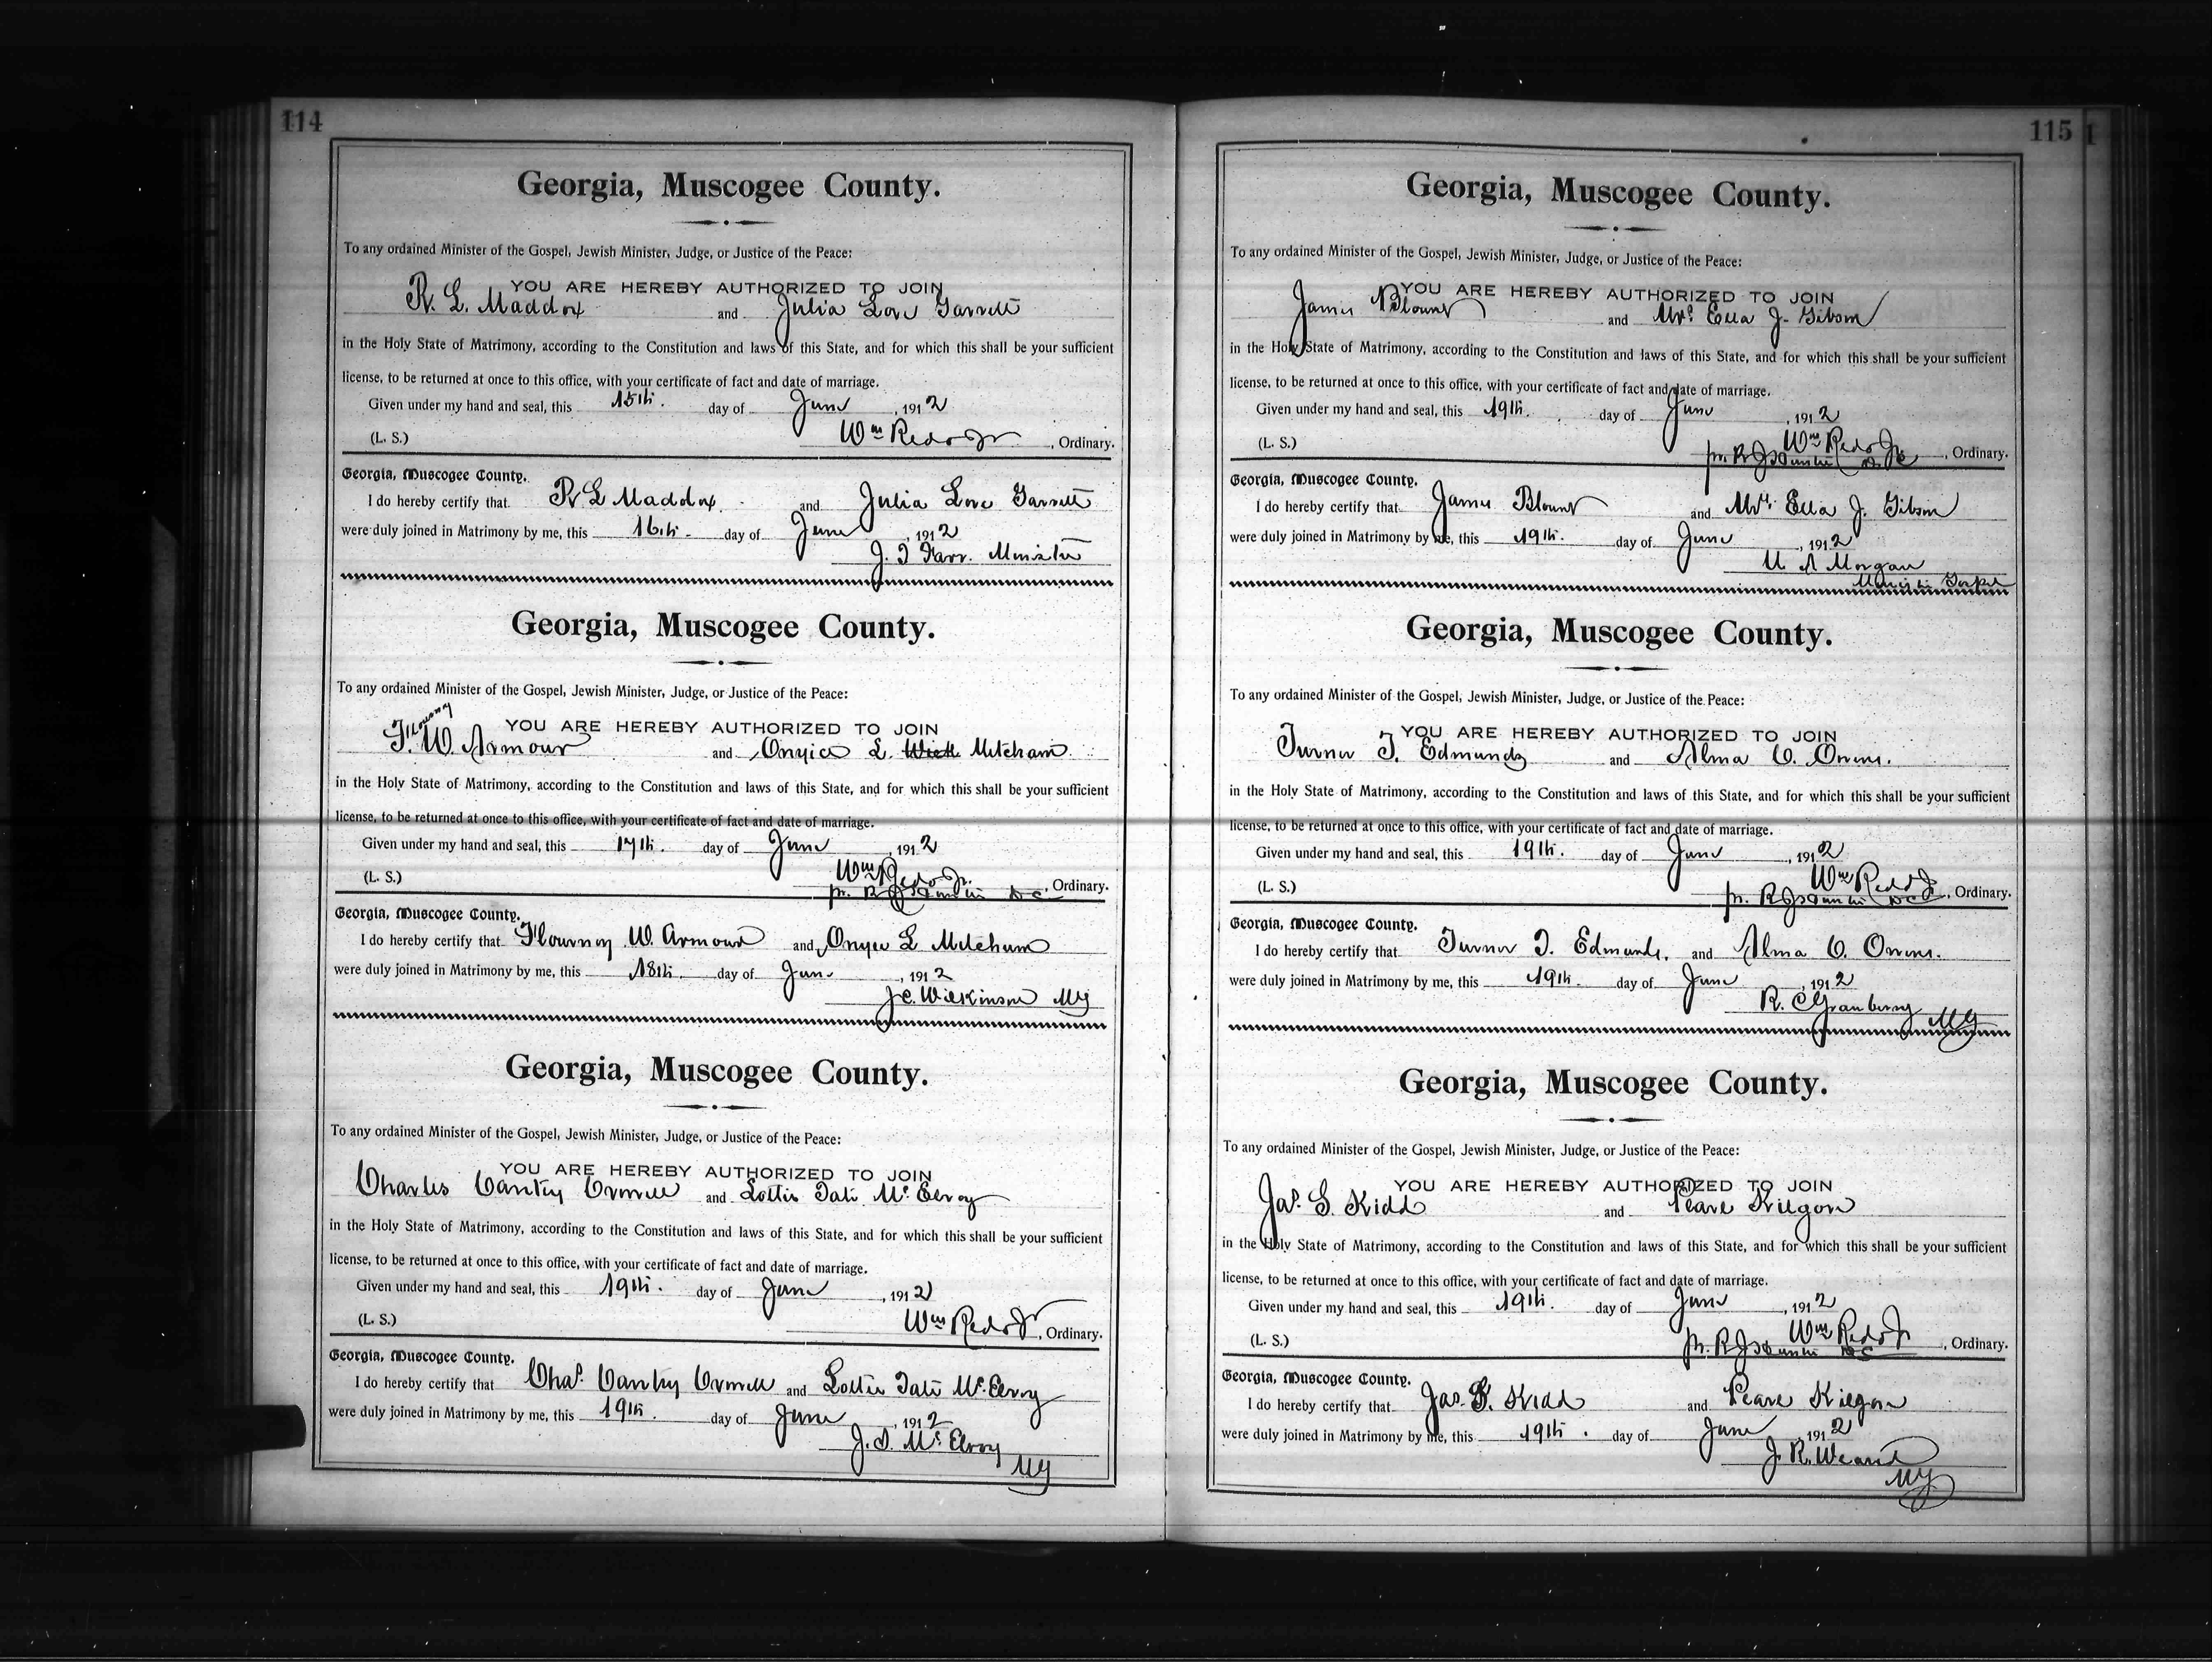 114
Georgia, Muscogee County.
To any ordained Minister of the Gospel, Jewish Minister, Judge, or Justice of the Peace:
YOU ARE HEREBY AUTHORIZED TO JOIN
R. L. Maddox and Julia Love Garrett
in the Holy State of Matrimony, according to the Constitution and laws of this State, and for which this shall be your sufficient
license, to be returned at once to this office, with your certificate of fact and date of marriage.
Given under my hand and seal, this 15th. day of June, 1912
(L. S.) Wm Redd Jr, Ordinary.
Georgia, Muscogee County.
I do hereby certify that R L Maddox. and Julia Love Garrett
were duly joined in Matrimony by me, this 16th. day of June, 1912
J. T Farr. Minister
Georgia, Muscogee County.
To any ordained Minister of the Gospel, Jewish Minister, Judge, or Justice of the Peace:
Flournoy
YOU ARE HEREBY AUTHORIZED TO JOIN
F. W. Armour and Onyice L. Mitcham
in the Holy State of Matrimony, according to the Constitution and laws of this State, and for which this shall be your sufficient
license, to be returned at once to this office, with your certificate of fact and date of marriage.
Given under my hand and seal, this 17th. day of June, 1912
Wm Redd Jr.
(L. S.) pr. R J D C, Ordinary.
Georgia, Muscogee County.
I do hereby certify that Flournoy W. Armour and Onyce L Mitcham
were duly joined in Matrimony by me, this 18th. day of June, 1912
J. C. Wilkinson MG
Georgia, Muscogee County.
To any ordained Minister of the Gospel, Jewish Minister, Judge, or Justice of the Peace:
YOU ARE HEREBY AUTHORIZED TO JOIN
Charles and Lottie Tate McElroy
in the Holy State of Matrimony, according to the Constitution and laws of this State, and for which this shall be your sufficient
license, to be returned at once to this office, with your certificate of fact and date of marriage.
Given under my hand and seal, this 19th. day of June, 1912
(L. S.) Wm Redd Jr, Ordinary.
Georgia, Muscogee County.
I do hereby certify that Chas. and Lottie Tate McElroy
were duly joined in Matrimony by me, this 19th. day of June, 1912
J. S. McElroy
MG
115
Georgia, Muscogee County.
To any ordained Minister of the Gospel, Jewish Minister, Judge, or Justice of the Peace:
YOU ARE HEREBY AUTHORIZED TO JOIN
James Blount and Mrs. Ella J. Gibson
in the Holy State of Matrimony, according to the Constitution and laws of this State, and for which this shall be your sufficient
license, to be returned at once to this office, with your certificate of fact and date of marriage.
Given under my hand and seal, this 19th. day of June, 1912
Wm Redd Jr
(L. S.) pr. R J D C, Ordinary.
Georgia, Muscogee County.
I do hereby certify that James Blount and Mrs. Ella J. Gibson
were duly joined in Matrimony by me, this 19th. day of June, 1912
Morgan
Minister Gospel
Georgia, Muscogee County.
To any ordained Minister of the Gospel, Jewish Minister, Judge, or Justice of the Peace:
YOU ARE HEREBY AUTHORIZED TO JOIN
Turner T. Edmunds and Alma O. Owens.
in the Holy State of Matrimony, according to the Constitution and laws of this State, and for which this shall be your sufficient
license, to be returned at once to this office, with your certificate of fact and date of marriage.
Given under my hand and seal, this 19th. day of June, 1912
Wm Redd Jr
(L. S.) pr. R J D C, Ordinary.
Georgia, Muscogee County.
I do hereby certify that Turner T. Edmunds. and Alma O. Owens.
were duly joined in Matrimony by me, this 19th. day of June, 1912
R. C Granberry MG
Georgia, Muscogee County.
To any ordained Minister of the Gospel, Jewish Minister, Judge, or Justice of the Peace:
YOU ARE HEREBY AUTHORIZED TO JOIN
Jas. S. Kidd and Pearl Kilgore
in the Holy State of Matrimony, according to the Constitution and laws of this State, and for which this shall be your sufficient
license, to be returned at once to this office, with your certificate of fact and date of marriage.
Given under my hand and seal, this 19th. day of June, 1912
Wm Redd Jr
(L. S.) pr. R J D C, Ordinary.
Georgia, Muscogee County.
I do hereby certify that Jas. S. Kidd and Pearl Kilgore
were duly joined in Matrimony by me, this 19th. day of June, 1912
J. R. Weand
MG